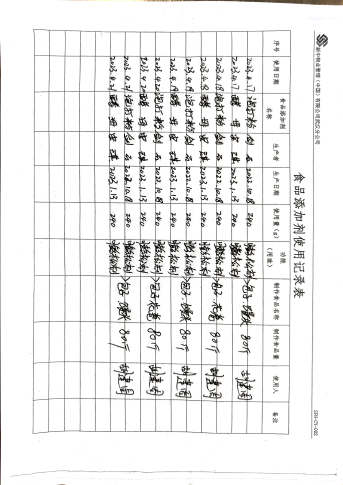 新中物业管理（中国）有限公司武汉分公司
食品添加剂使用记录表
序号 使用日期 食品添加剂名称 生产者 生产日期 使用量(g) 功能（用途） 制作食品名称 制作食品量 使用人 备注
2023.4.17 泡打粉 2022.10.18 240 膨松剂 包子.馒头 80斤
2023.4.17 酵母 安琪 2023.1.13 240 膨松剂
2023.4.18 泡打粉 2022.10.18 240 膨松剂 包子.花卷 80斤
2023.4.18 酵母 安琪 2023.1.13 240 膨松剂
2023.4.19 泡打粉 2022.10.18 240 膨松剂 包子.馒头 80斤
2023.4.19 酵母 安琪 2023.1.13 240 膨松剂
2023.4.20 泡打粉 2022.10.18 240 膨松剂 包子.花卷 80斤
2023.4.20 酵母 安琪 2023.1.13 240 膨松剂
2023.4.21 泡打粉 2022.10.18 240 膨松剂 包子.馒头 80斤
2023.4.21 酵母 安琪 2023.1.13 240 膨松剂